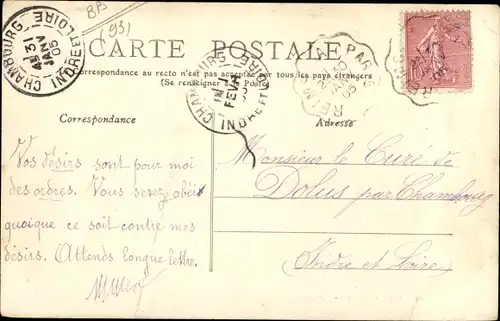 B93
(93)
CARTE POSTALE
Correspondance au recto n'est pas acceptée par tous les pays étrangers
(Se renseigner à la Poste)
CHAMBOURG
31
JANV
05
INDRE ET LOIRE
CHAMBOURG
FEVR
INDRE ET LOIRE
PARIS
REIMS
05
10
Correspondance
Adresse
Vos désirs sont pour moi
des ordres. Vous serez obéi
quoique ce soit contre mes
désirs. Attends longue lettre.
Monsieur le Curé de
Dolus par Chambourg
Indre et Loire